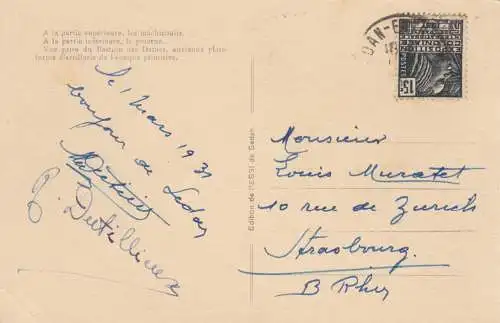 A la partie supérieure, les machicoulis.
A la partie inférieure, la poterne.
Vue prise du Bastion des Dames, ancienne plate-
forme d'artillerie de l'époque primitive.
le 1 Mars 1931
bonjour de Sedan
Dutillieux
Edition de l'ESSI de Sedan
DAN
POSTES
15c
Monsieur
Louis Muratet
10 rue de Zurich
Strasbourg.
B Rhin